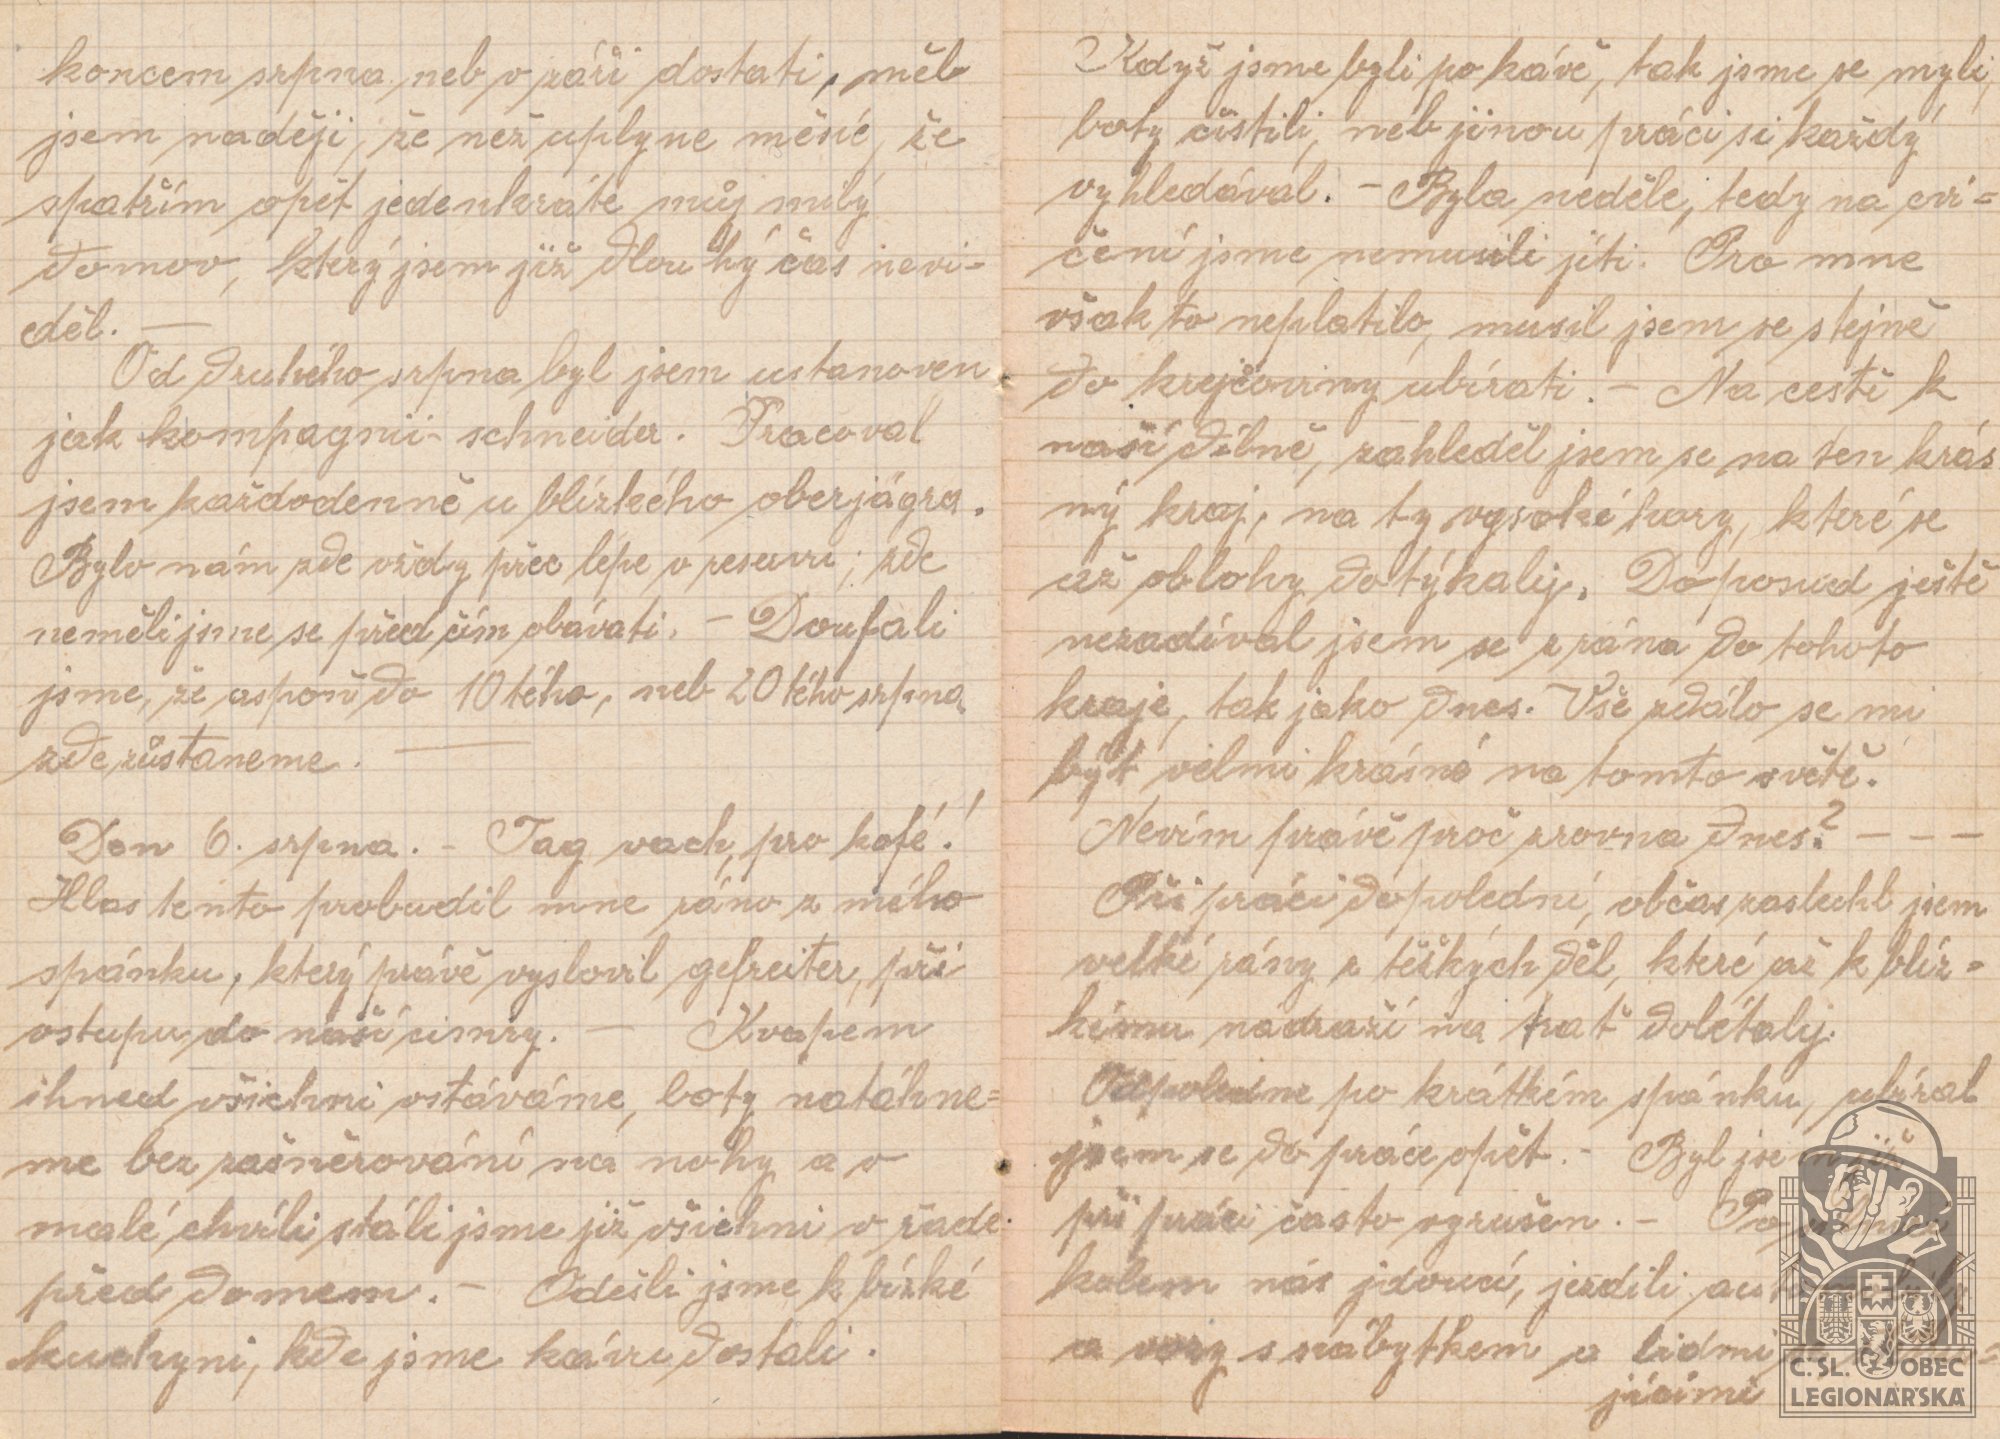 koncem srpna neb v září dostati, měl
jsem naději, že než uplyne měsíc, že
spatřím opět jedenkráte můj milý
domov, který jsem již dlouhý čas nevi-
děl. —
Od druhého srpna byl jsem ustanoven
jak kompagnii-schneider. Pracoval
jsem každodenně u blízkého oberjágra.
Bylo nám zde vždy přec lépe v reservi; zde
neměli jsme se před čím obávati. — Doufali
jsme, že aspoň do 10tého, neb 20tého srpna
zde zůstaneme. —
Den 6. srpna. - Tag vach, pro kofé!
Hlas tento probudil mne ráno z mého
spánku, který právě vyslovil gefreiter, při
vstupu do naší cimry. — Kvapem
ihned všichni vstáváme, boty natáhne=
me bez zašněrování na nohy a v
malé chvíli stáli jsme již všichni v řade
před domem. — Odešli jsme k bízké
kuchyni, kde jsme kávu dostali.
Když jsme byli po kávě, tak jsme se myli,
boty čistili, neb jinou práci si každý
vyhledával. — Byla neděle, tedy na cvi=
čení jsme nemusili jíti. Pro mne
však to neplatilo, musil jsem se stejně
do krejčoviny ubírati. — Na cestě k
naší dílně, zahleděl jsem se na ten krás
ný kraj, na ty vysoké hory, které se
až oblohy dotýkaly. Doposud ještě
nezadíval jsem se z rána do tohoto
kraje, tak jako dnes. Vše zdálo se mi
být velmi krásné na tomto světě.
Nevím právě proč zrovna dnes? — — —
Při práci dopolední, občas zaslechl jsem
velké rány z těžkých děl, které až k blíz=
kému nadraží na trať dolétaly.
Odpoledne po krátkém spánku, ubíral
jsem se do práce opět. - Byl jsem již
při práci často vyrušen. — Po silnici
kolem nás jdoucí, jezdili automobily
a vozy s nábytkem a lidmi
jícími
Č. SL. OBEC
LEGIONÁŘSKÁ